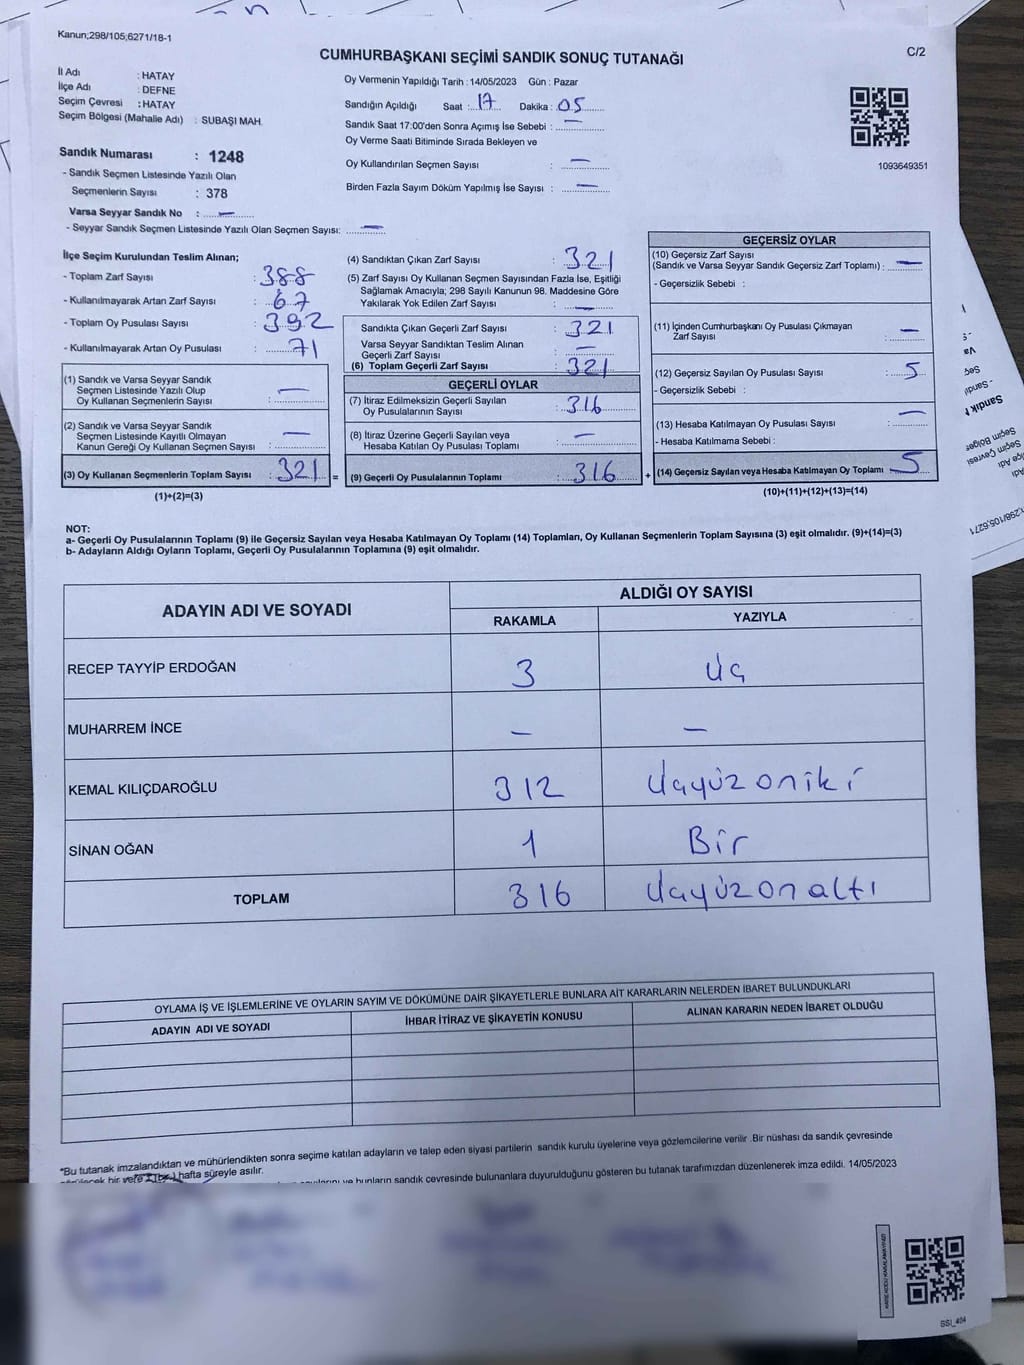 Kanun;298/105;6271/18-1
C/2
CUMHURBAŞKANI SEÇİMİ SANDIK SONUÇ TUTANAĞI
İl Adı : HATAY
İlçe Adı : DEFNE
Seçim Çevresi : HATAY
Seçim Bölgesi (Mahalle Adı) : SUBAŞI MAH.
Sandık Numarası : 1248
- Sandık Seçmen Listesinde Yazılı Olan
Seçmenlerin Sayısı : 378
Varsa Seyyar Sandık No : —
- Seyyar Sandık Seçmen Listesinde Yazılı Olan Seçmen Sayısı: —
Oy Vermenin Yapıldığı Tarih : 14/05/2023 Gün : Pazar
Sandığın Açıldığı Saat : 17 Dakika : 05
Sandık Saat 17:00'den Sonra Açımış İse Sebebi : —
Oy Verme Saati Bitiminde Sırada Bekleyen ve
Oy Kullandırılan Seçmen Sayısı : —
Birden Fazla Sayım Döküm Yapılmış İse Sayısı : —
1093649351
İlçe Seçim Kurulundan Teslim Alınan;
- Toplam Zarf Sayısı : 388
- Kullanılmayarak Artan Zarf Sayısı : 67
- Toplam Oy Pusulası Sayısı : 392
- Kullanılmayarak Artan Oy Pusulası : 71
(1) Sandık ve Varsa Seyyar Sandık
Seçmen Listesinde Yazılı Olup
Oy Kullanan Seçmenlerin Sayısı : —
(2) Sandık ve Varsa Seyyar Sandık
Seçmen Listesinde Kayıtlı Olmayan
Kanun Gereği Oy Kullanan Seçmen Sayısı : —
(3) Oy Kullanan Seçmenlerin Toplam Sayısı : 321 =
(1)+(2)=(3)
(4) Sandıktan Çıkan Zarf Sayısı : 321
(5) Zarf Sayısı Oy Kullanan Seçmen Sayısından Fazla İse, Eşitliği
Sağlamak Amacıyla; 298 Sayılı Kanunun 98. Maddesine Göre
Yakılarak Yok Edilen Zarf Sayısı : —
Sandıkta Çıkan Geçerli Zarf Sayısı : 321
Varsa Seyyar Sandıktan Teslim Alınan
Geçerli Zarf Sayısı : —
(6) Toplam Geçerli Zarf Sayısı : 321
GEÇERLİ OYLAR
(7) İtiraz Edilmeksizin Geçerli Sayılan
Oy Pusulalarının Sayısı : 316
(8) İtiraz Üzerine Geçerli Sayılan veya
Hesaba Katılan Oy Pusulası Toplamı : —
(9) Geçerli Oy Pusulalarının Toplamı : 316 +
GEÇERSİZ OYLAR
(10) Geçersiz Zarf Sayısı
(Sandık ve Varsa Seyyar Sandık Geçersiz Zarf Toplamı) : —
- Geçersizlik Sebebi :
(11) İçinden Cumhurbaşkanı Oy Pusulası Çıkmayan
Zarf Sayısı : —
(12) Geçersiz Sayılan Oy Pusulası Sayısı : 5
- Geçersizlik Sebebi :
(13) Hesaba Katılmayan Oy Pusulası Sayısı : —
- Hesaba Katılmama Sebebi :
(14) Geçersiz Sayılan veya Hesaba Katılmayan Oy Toplamı : 5
(10)+(11)+(12)+(13)=(14)
NOT:
a- Geçerli Oy Pusulalarının Toplamı (9) ile Geçersiz Sayılan veya Hesaba Katılmayan Oy Toplamı (14) Toplamları, Oy Kullanan Seçmenlerin Toplam Sayısına (3) eşit olmalıdır. (9)+(14)=(3)
b- Adayların Aldığı Oyların Toplamı, Geçerli Oy Pusulalarının Toplamına (9) eşit olmalıdır.
ADAYIN ADI VE SOYADI ALDIĞI OY SAYISI
RAKAMLA YAZIYLA
RECEP TAYYİP ERDOĞAN 3 Üç
MUHARREM İNCE — —
KEMAL KILIÇDAROĞLU 312 Üçyüz oniki
SİNAN OĞAN 1 Bir
TOPLAM 316 Üçyüz on altı
OYLAMA İŞ VE İŞLEMLERİNE VE OYLARIN SAYIM VE DÖKÜMÜNE DAİR ŞİKAYETLERLE BUNLARA AİT KARARLARIN NELERDEN İBARET BULUNDUKLARI
ADAYIN ADI VE SOYADI İHBAR İTİRAZ VE ŞİKAYETİN KONUSU ALINAN KARARIN NEDEN İBARET OLDUĞU
*Bu tutanak imzalandıktan ve mühürlendikten sonra seçime katılan adayların ve talep eden siyasi partilerin sandık kurulu üyelerine veya gözlemcilerine verilir .Bir nüshası da sandık çevresinde
bir yere 1(bir) hafta süreyle asılır.
ve bunların sandık çevresinde bulunanlara duyurulduğunu gösteren bu tutanak tarafımızdan düzenlenerek imza edildi. 14/05/2023
SSI_404